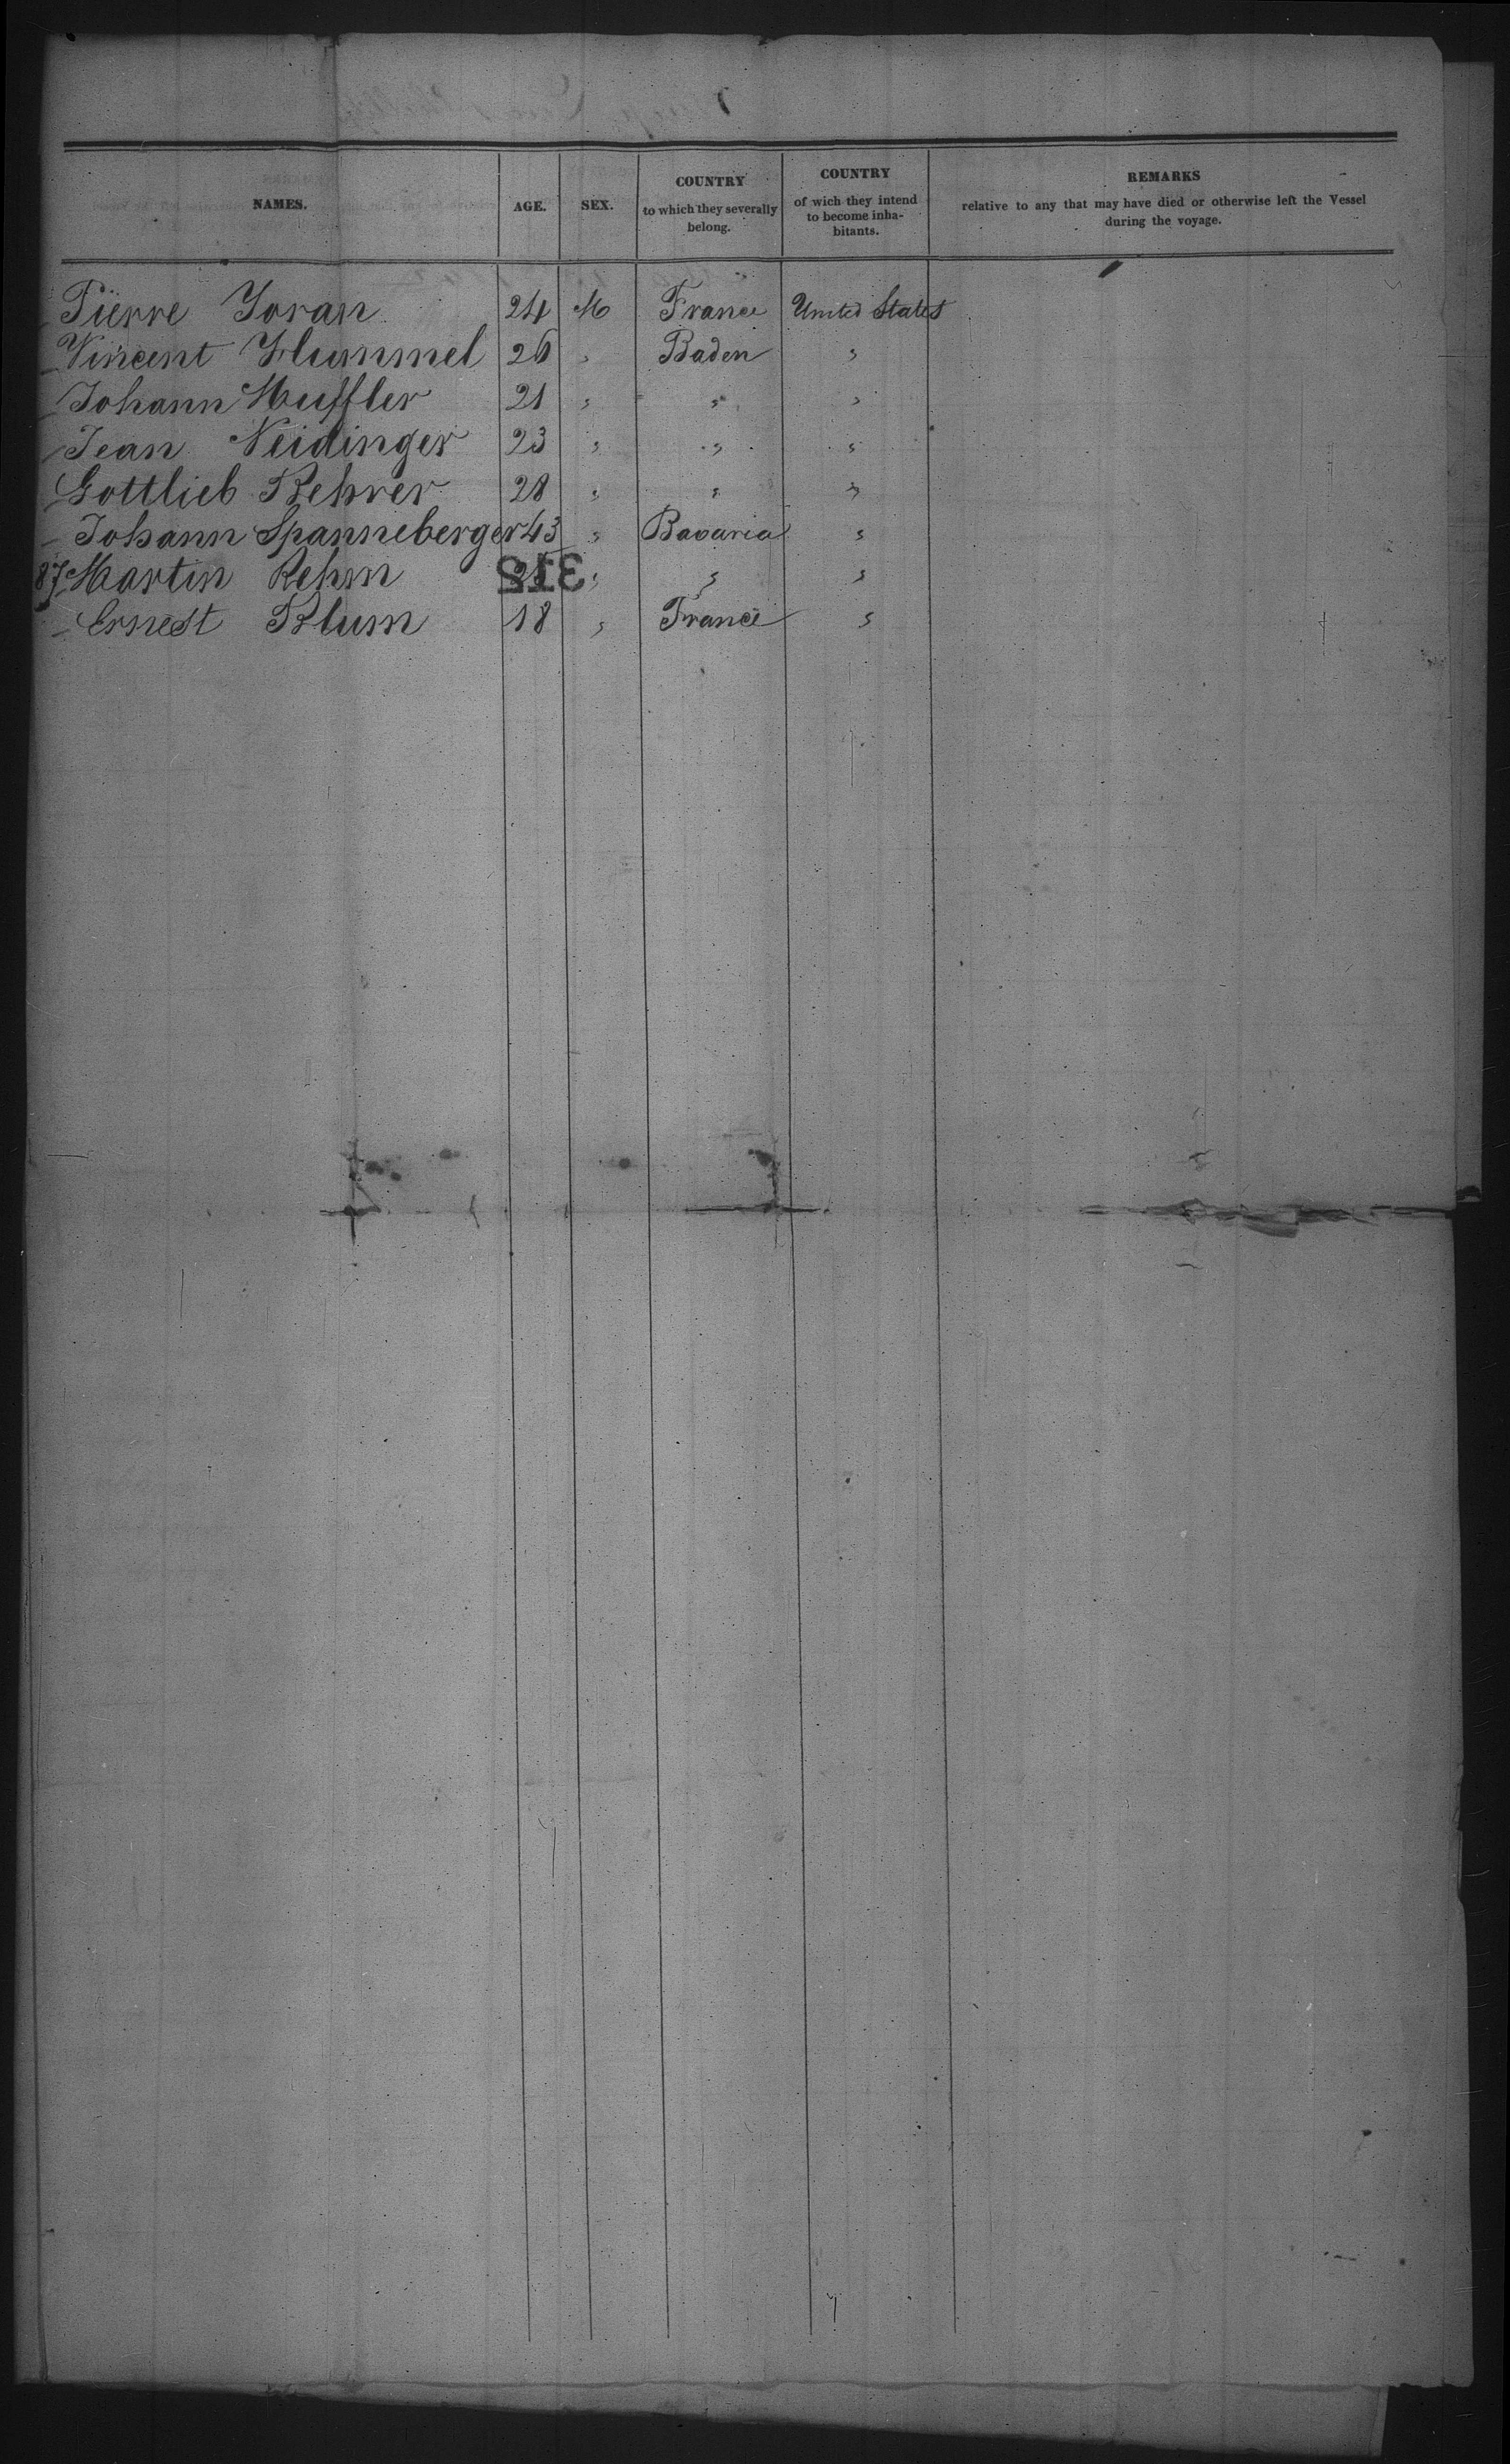 NAMES. AGE. SEX. COUNTRY to which they severally belong. COUNTRY of wich they intend to become inha- bitants. REMARKS relative to any that may have died or otherwise left the Vessel during the voyage.
Pierre Joran 24 M France United States
Vincent Hummel 26 " Baden "
Johann Muffler 21 " " "
Jean Neidinger 23 " " "
Gottlieb Rehrer 28 " " "
Johann Spanneberger 43 " Bavaria "
87 Martin Rehm " " "
Ernest Blum 18 " France "